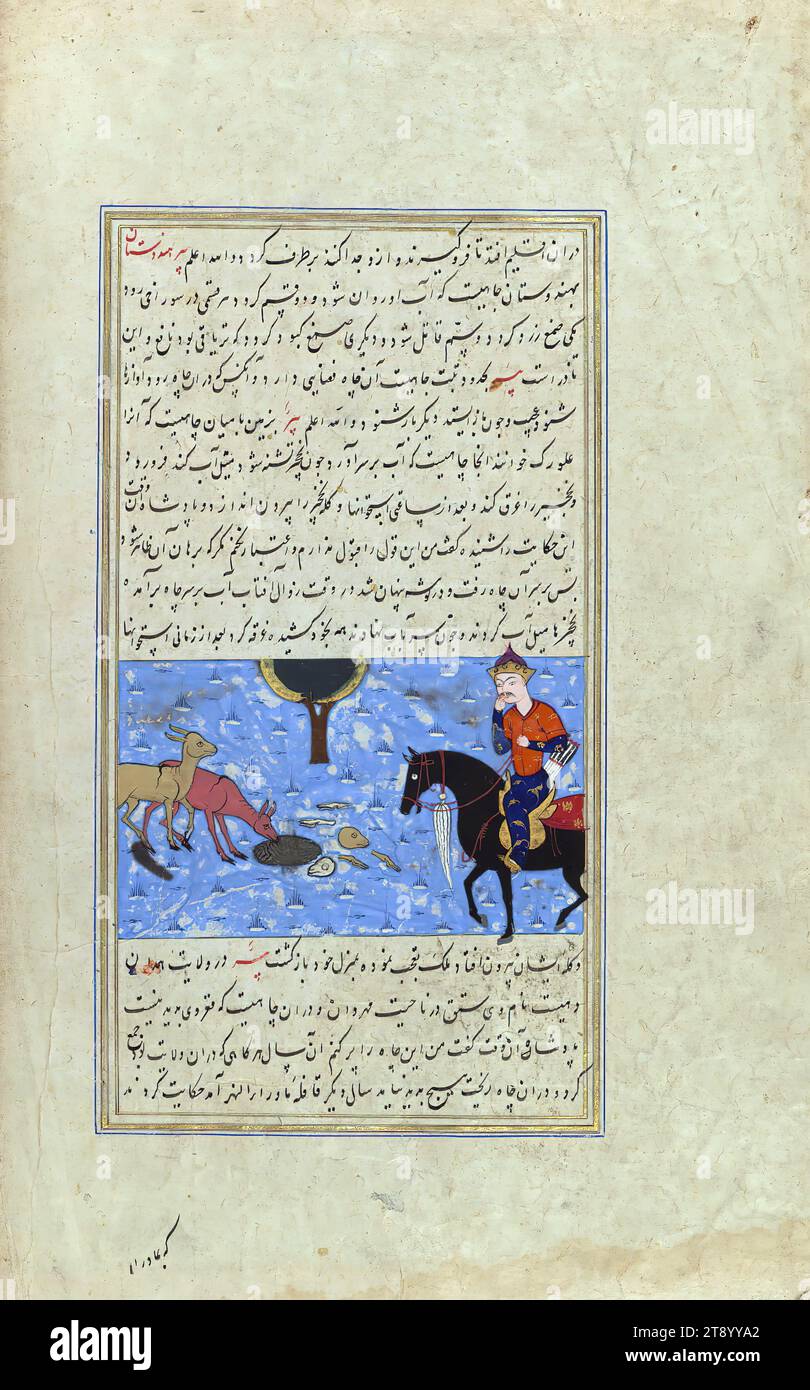 در ان اقلیم افتد تا فرو گیرند و ازو جدا کنند بر طرف کردد والله اعلم بیر هندوستان
بهندوستان چاهیست که آب او روان شود و دو قسم کردد هر قسمی در سوراخی رود
یکی صمغ زرد کردد و سم قاتل شود و دیگری صمغ کبود کردد که تریاقی بود نافع و این
نادر است بیر بحدود تبت چاهیست آن چاه فضایی دارد و آنکس که در ان چاه رود آوازها
شنود عجیب و چون باز ایستد دیگر باز شنود والله اعلم بیر بزمین بامیان چاهیست که آنرا
خوانند انجا چاهیست که آب بر سر آورد چون نخجیر تشنه شود میل آب کند فرو رود
و نخجیر را غرق کند و بعد از ساعتی استخوانها و کله نخجیر را بیرون اندازد و پادشاه وقت
این حکایت را شنیده گفت من این قول را قبول ندارم و اعتبار نکنم مکر که برهان آن ظاهر شود
پس بر سر آن چاه رفت و در کوشه پنهان شد در وقت زوال آفتاب آب بر سر چاه بر آمد
نخجیرها میل آب کردند و چون سر بآب نهادند همه بخود کشیده غرقه کرد بعد از زمانی استخوانها
و کله ایشان بیرون افتاد ملک تعجب نموده بمنزل خود باز گشت بیر در ولایت همدان
دهیست نام وی در ناحیت و در ان چاهیست که قعر وی پدید نیست
پادشاه آن وقت گفت من این چاه را پر کنم آن سال هر کاهی که در ان ولایت بود جمع
کرد و در ان چاه ریخت هیچ پدید نیامد سال دیگر قافله ماورا النهر آمد حکایت کردند
که ما در
alamy
alamy
Image ID: 2T8YYA2
www.alamy.com